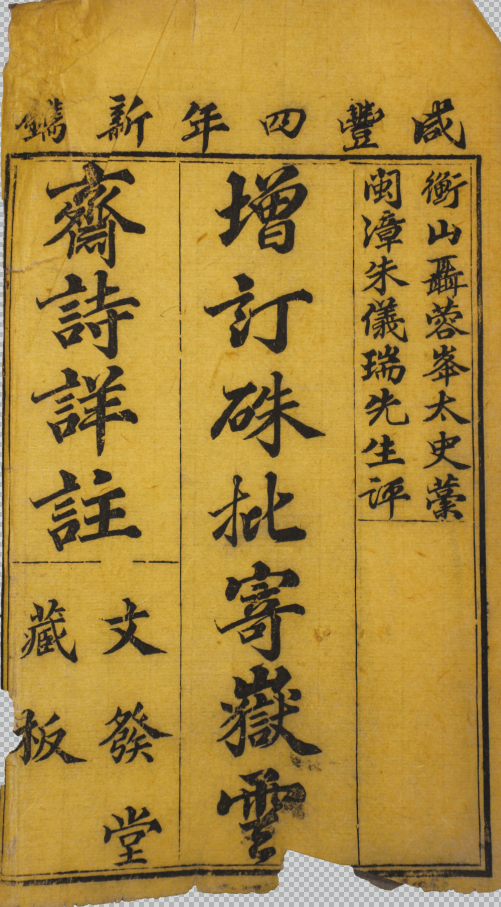 咸豐四年新鐫
衡山聶蓉峯太史藁
閩漳朱儀瑞先生評
增訂硃批寄嶽雲
齋詩詳註
文發堂
藏板